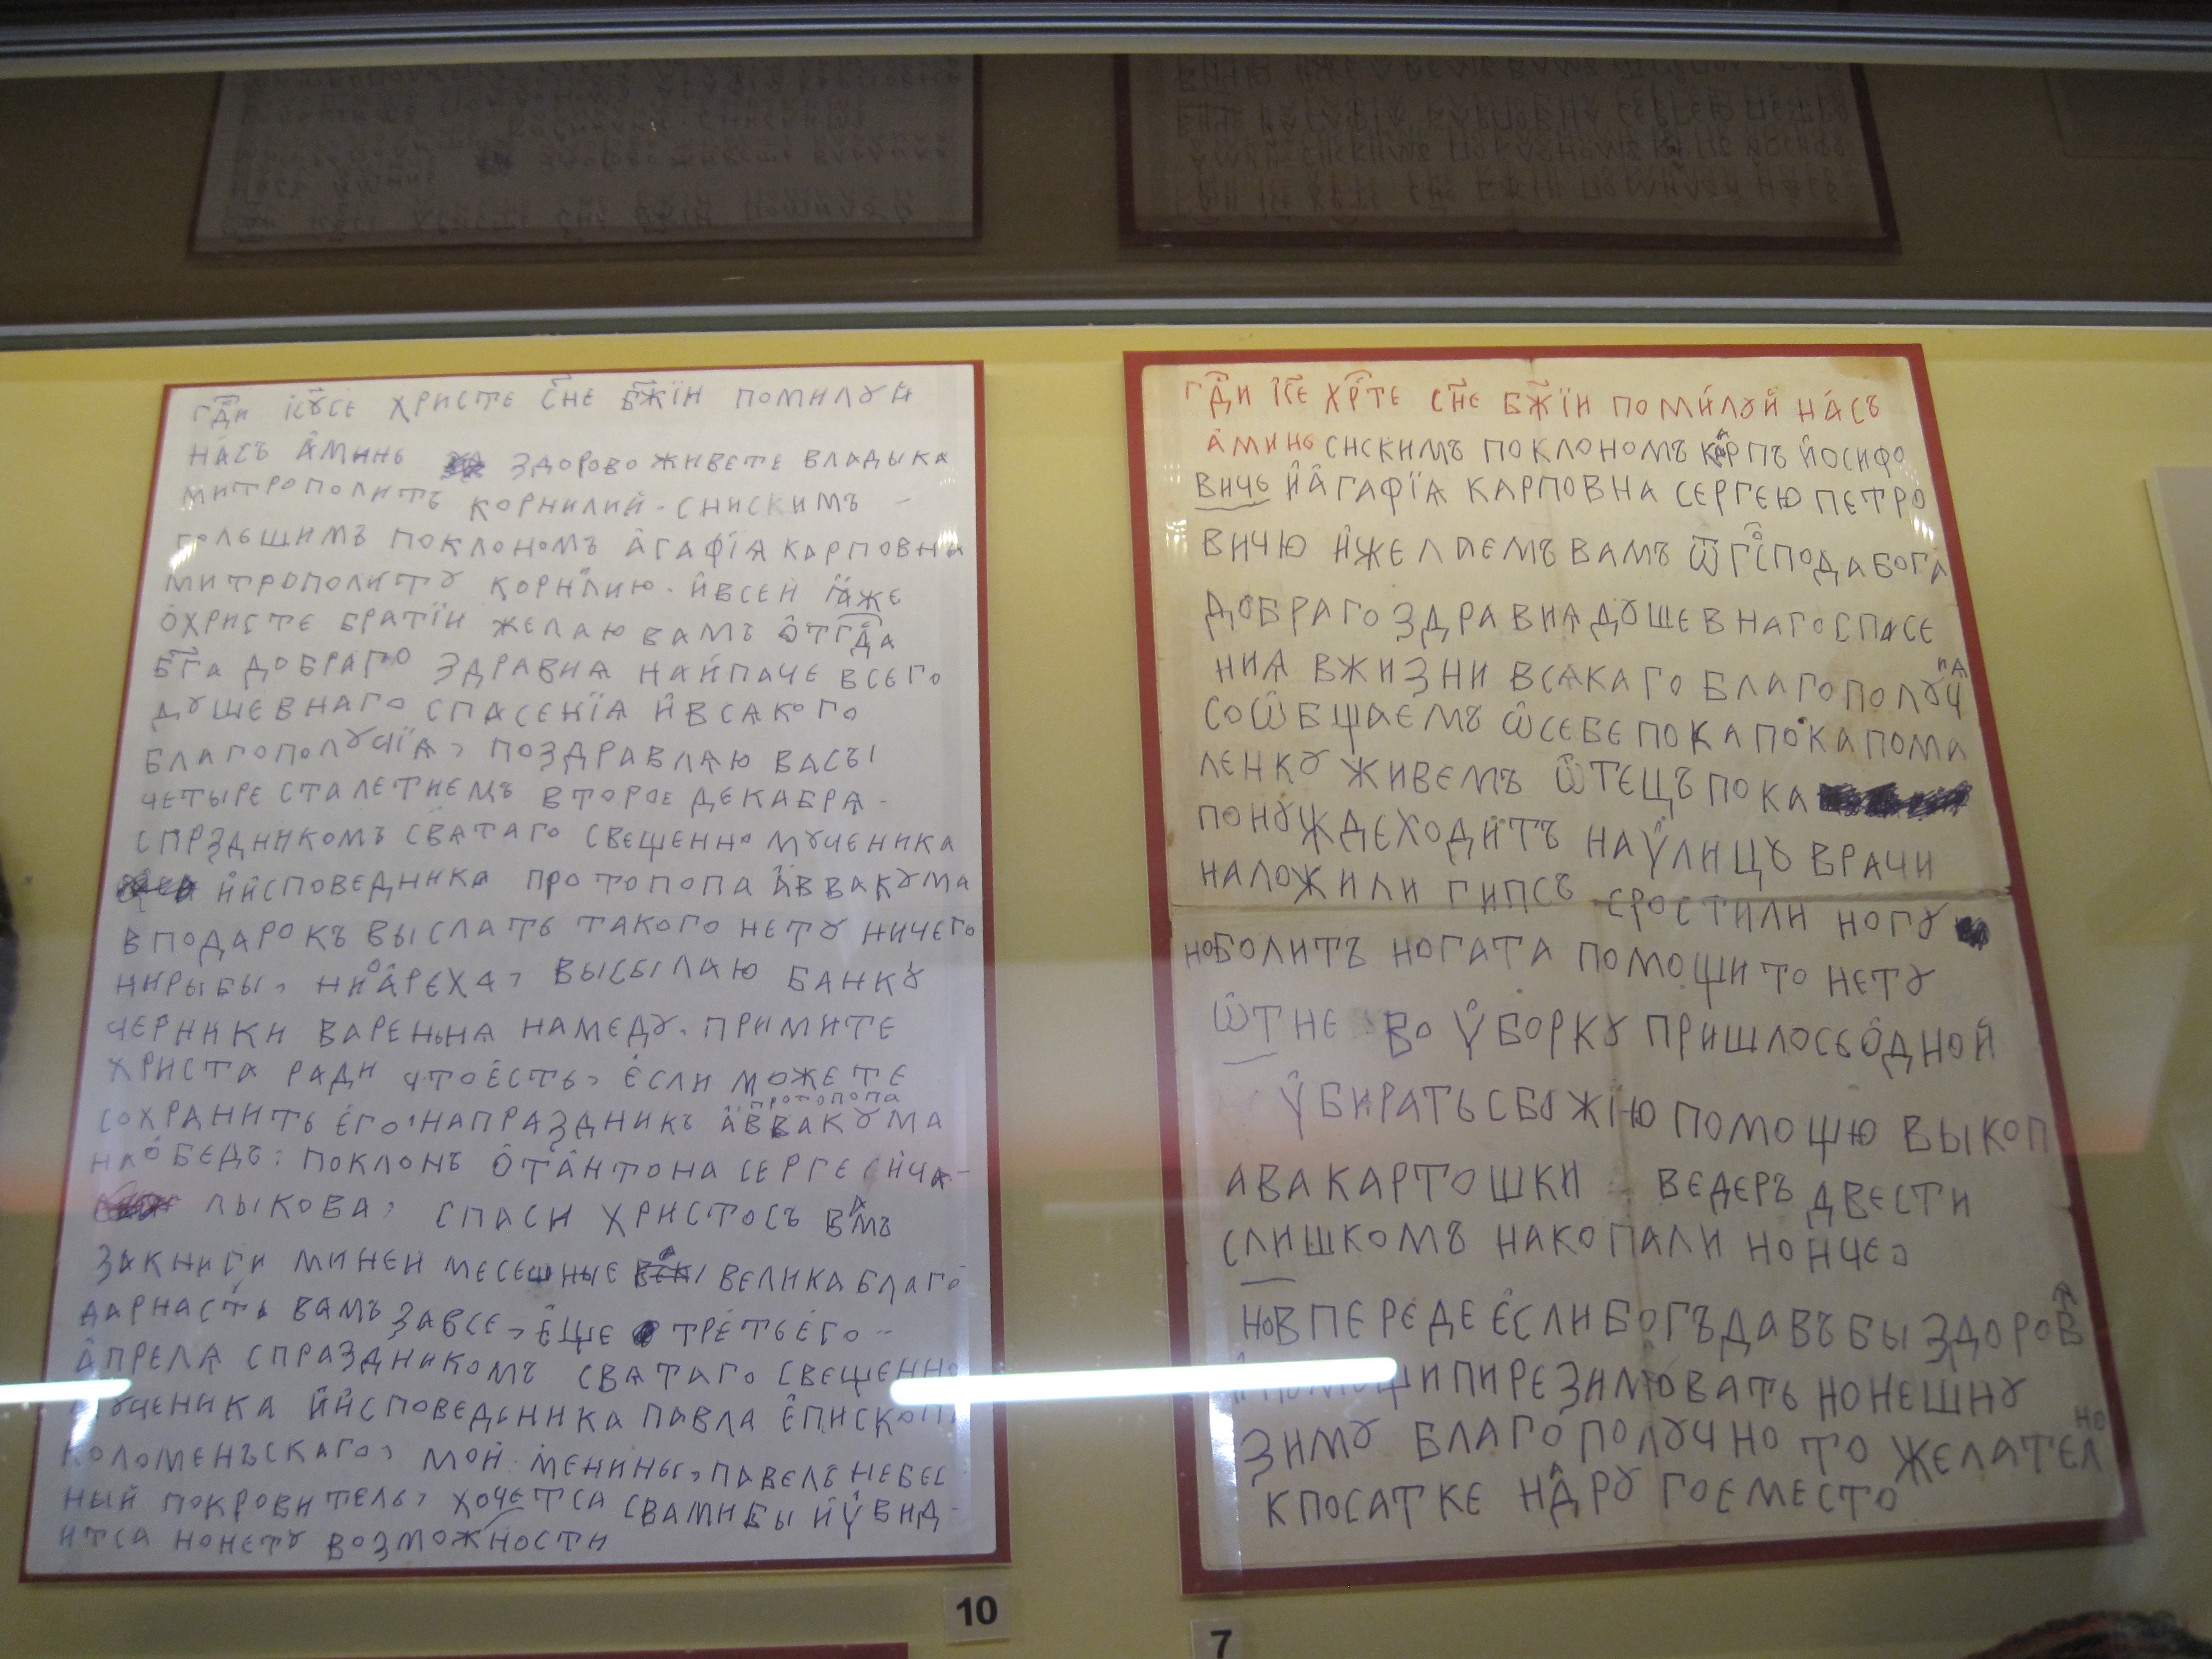 гд҃и ісꙋсе христе сн҃е бж҃їи помилꙋй
насъ аминь здорово живете владыка
митрополитъ корнилий - снискимъ -
поклономъ агафїѧ карповна
митрополитꙋ корнилию - ивсеи ꙗже
охристе братїи желаю вамъ отгд҃а
бг҃а добраго здравиѧ найпаче всего
дꙋшевнаго спасенїѧ ивсѧкого
благополꙋчїѧ, поздравлѧю васъ
четыре сталетиемъ второе декабрѧ -
спрздникомъ свѧтаго свещенно мꙋченика
ийсповедника протопопа аввакꙋма
вподарокъ выслать такого нетꙋ ничего
нирыбы, ниореха, высылаю банкꙋ
черники вареньнѧ намедꙋ. примите
христа ради чтоесть, если можете
сохранить его, напраздникъ протопопа аввакꙋма
наобедъ: поклонъ отантона сергесича -
лыкова, спаси христосъ вамъ
закниги минеи месешные велика благо
дарнасть вамъ завсе, еще третьего --
апрелѧ спраздникомъ свѧтаго свещенно
мꙋченика ийсповедьника павла епископа
коломенъскаго, мои менины, павелъ небес
ный покровитель, хочетсѧ свамибы иꙋвид -
итсѧ нонетꙋ возможности
10
гд҃и іс҃е хр҃те сн҃е бж҃їи помилꙋй насъ
аминь снскимъ поклономъ карпъ йосифо
вичь йагафїѧ карповна сергею петро
вичю йжелаемъ вамъ ѿ господа бога
добраго здравиѧ дꙋшевнаго спасе
ниѧ вжизни всѧкаго благополꙋчиѧ
соѡбщаемъ ѡсебе пока пока пома
ленкꙋ живемъ ѡтецъ пока
понꙋждеходитъ наꙋлицꙋ врачи
наложили гипсъ сростили ногꙋ
ноболитъ ногата помощи то нетꙋ
ѡтне во ꙋборкꙋ пришлосьодной
ꙋбирать сбожїю помощю выкоп
ава картошки ведеръ двести
слишкомъ накопали нонче,
новпереде если богъ давъ бы здоровт
помощи пирезимовать нонешнꙋ
зимꙋ благополꙋчно то желателно
кпосатке надрꙋгоеместо
7